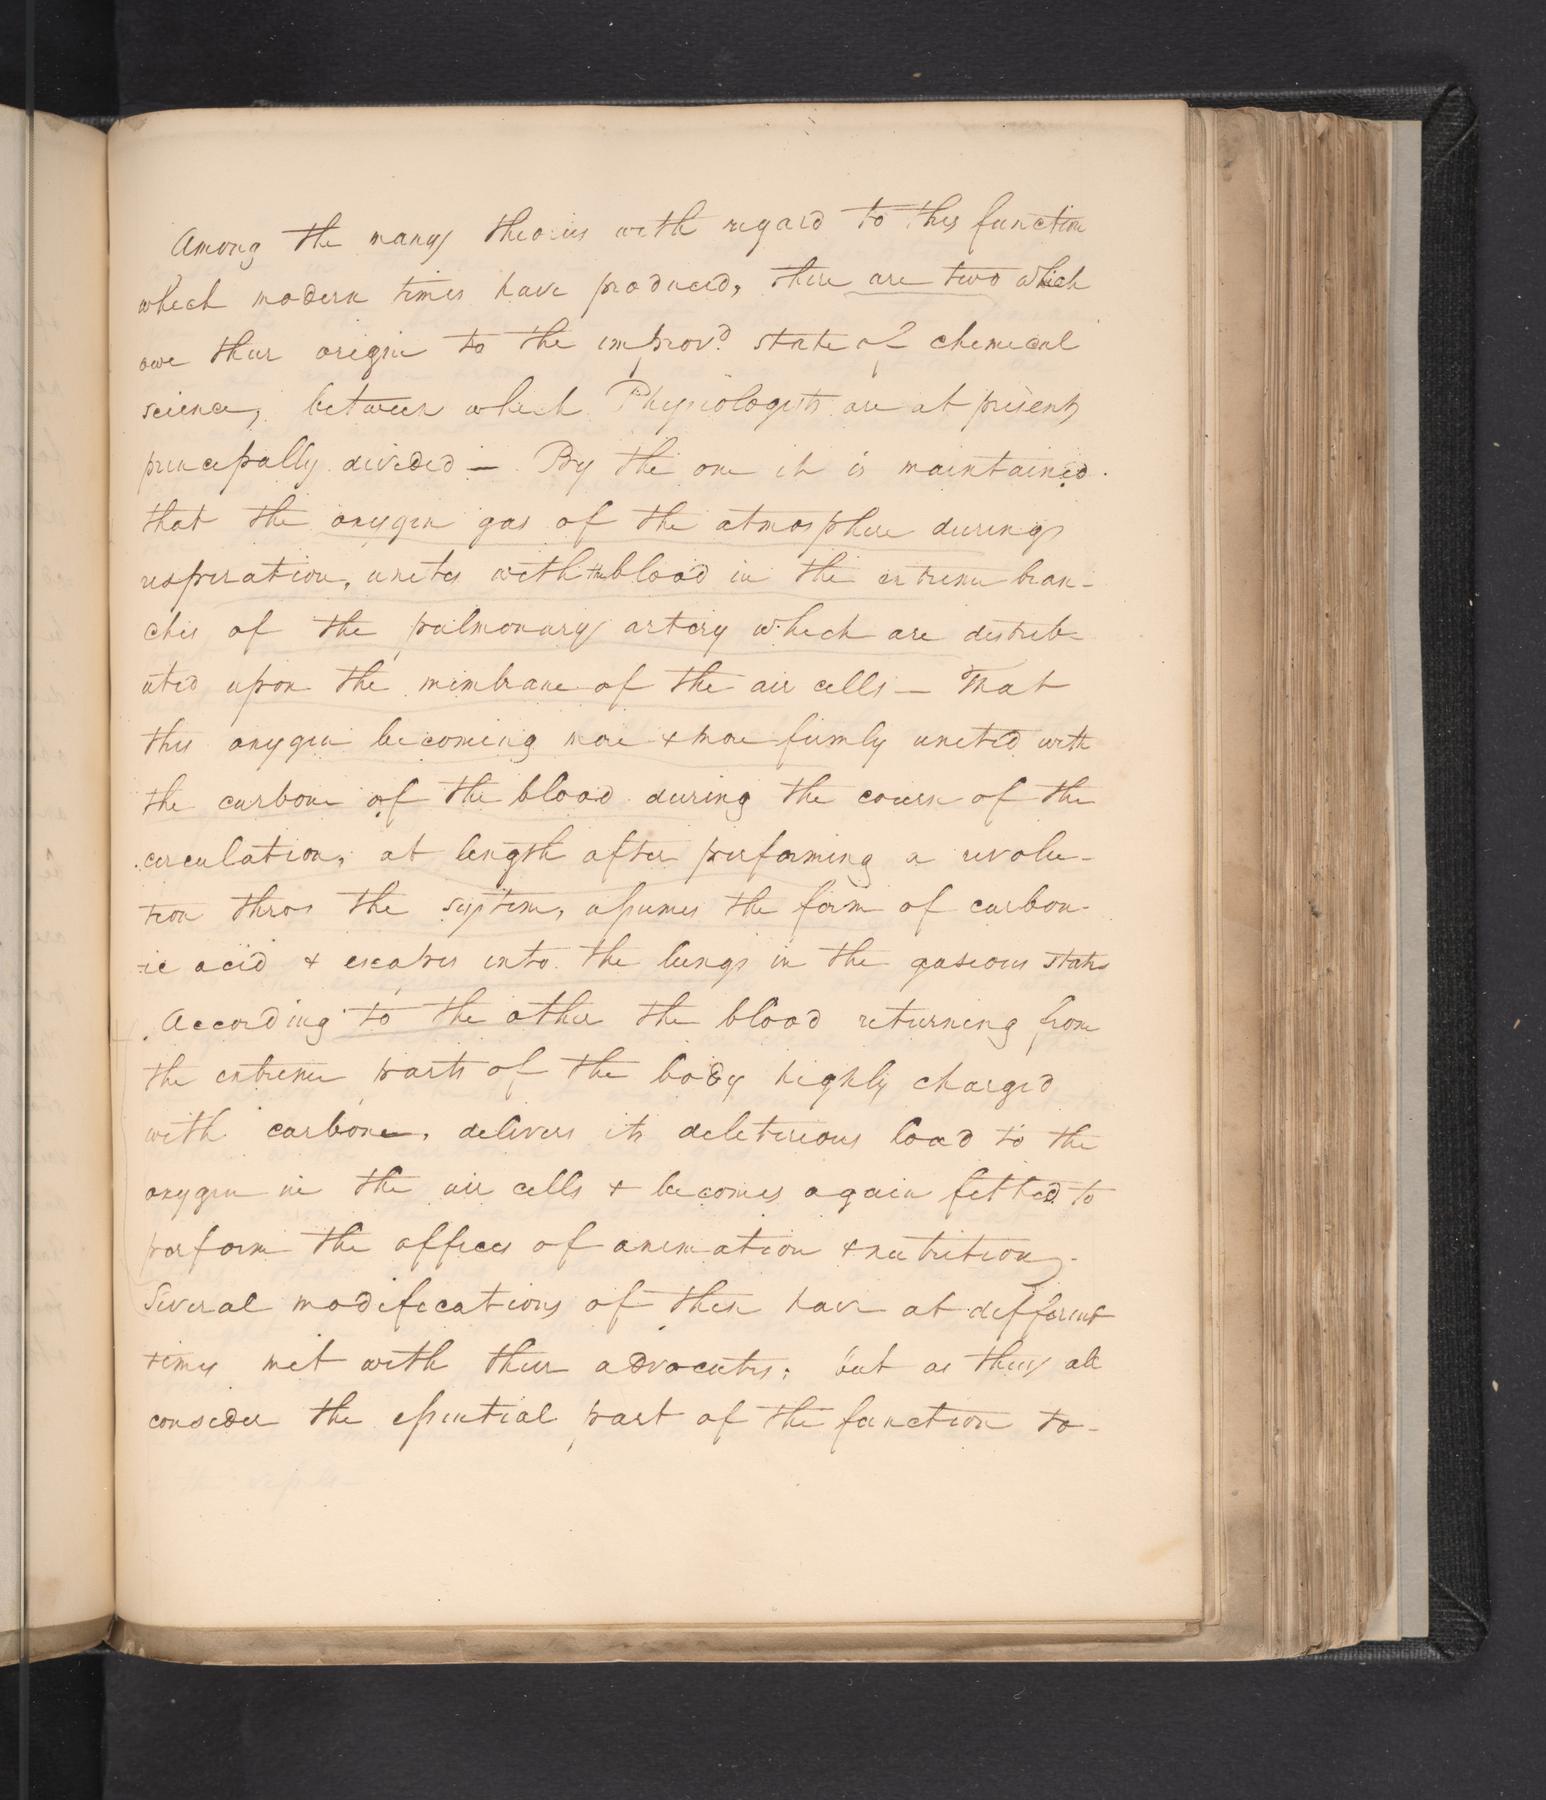 Among the many theories with regard to this function
which modern times have produced, there are two which
owe their origin to the improvd. state of chemical
science, between which Physiologists are at present
principally divided — By the one it is maintained
that the oxygen gas of the atmosphere during
respiration, unites with the blood in the extreme bran-
ches of the pulmonary artery which are distrib-
uted upon the membrane of the air cells — That
this oxygen becoming more & more firmly united with
the carbone of the blood during the course of the
circulation, at length after performing a revolu-
tion thro' the system, assumes the form of carbon-
ic acid & escapes into the lungs in the gaseous state
According to the other the blood returning from
the extreme parts of the body highly charged
with carbone, delivers its deleterious load to the
oxygen in the air cells & becomes again fitted to
perform the offices of animation & nutrition.
Several modifications of these have at different
times met with their advocates; but as they all
consider the essential part of the function to-